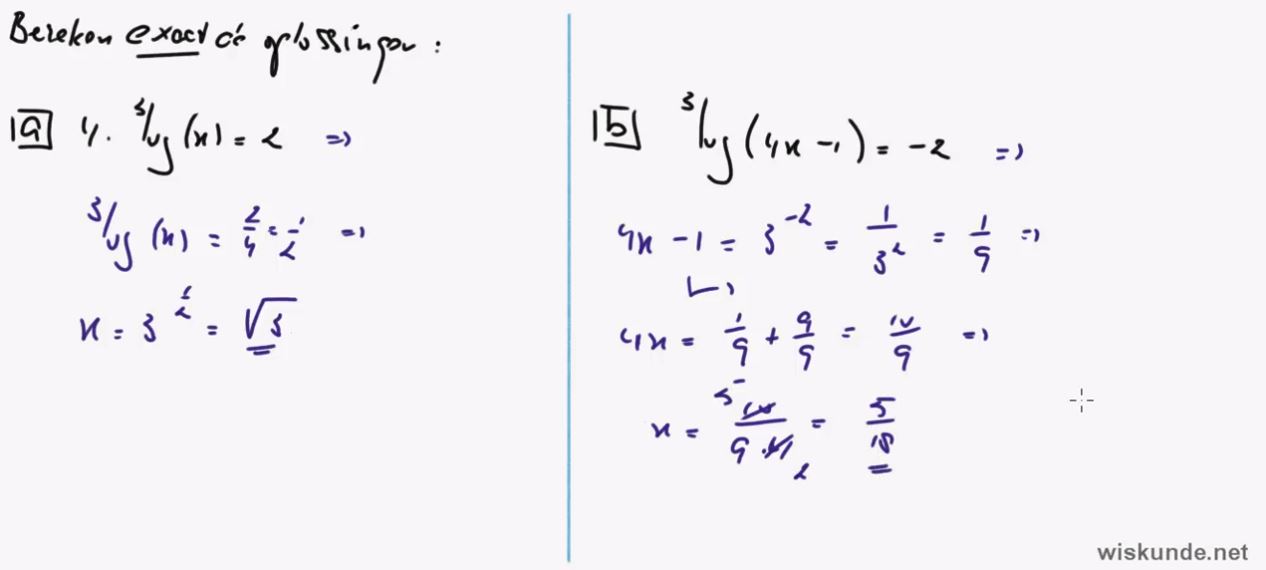 Bereken exact de oplossingen :
a 4 · ³log(x) = 2 =>
³log(x) = 2/4 = 1/2 =>
x = 3^(1/2) = √3
b ³log(4x - 1) = -2 =>
4x - 1 = 3^-2 = 1/3² = 1/9 =>
4x = 1/9 + 9/9 = 10/9 =>
x = 5 10/(9 · 4) 2 = 5/18
wiskunde.net